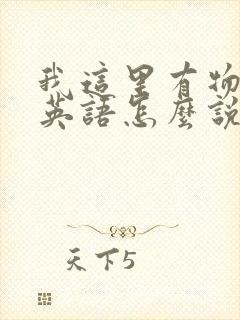 我這里有物
英語怎麼說
天下5